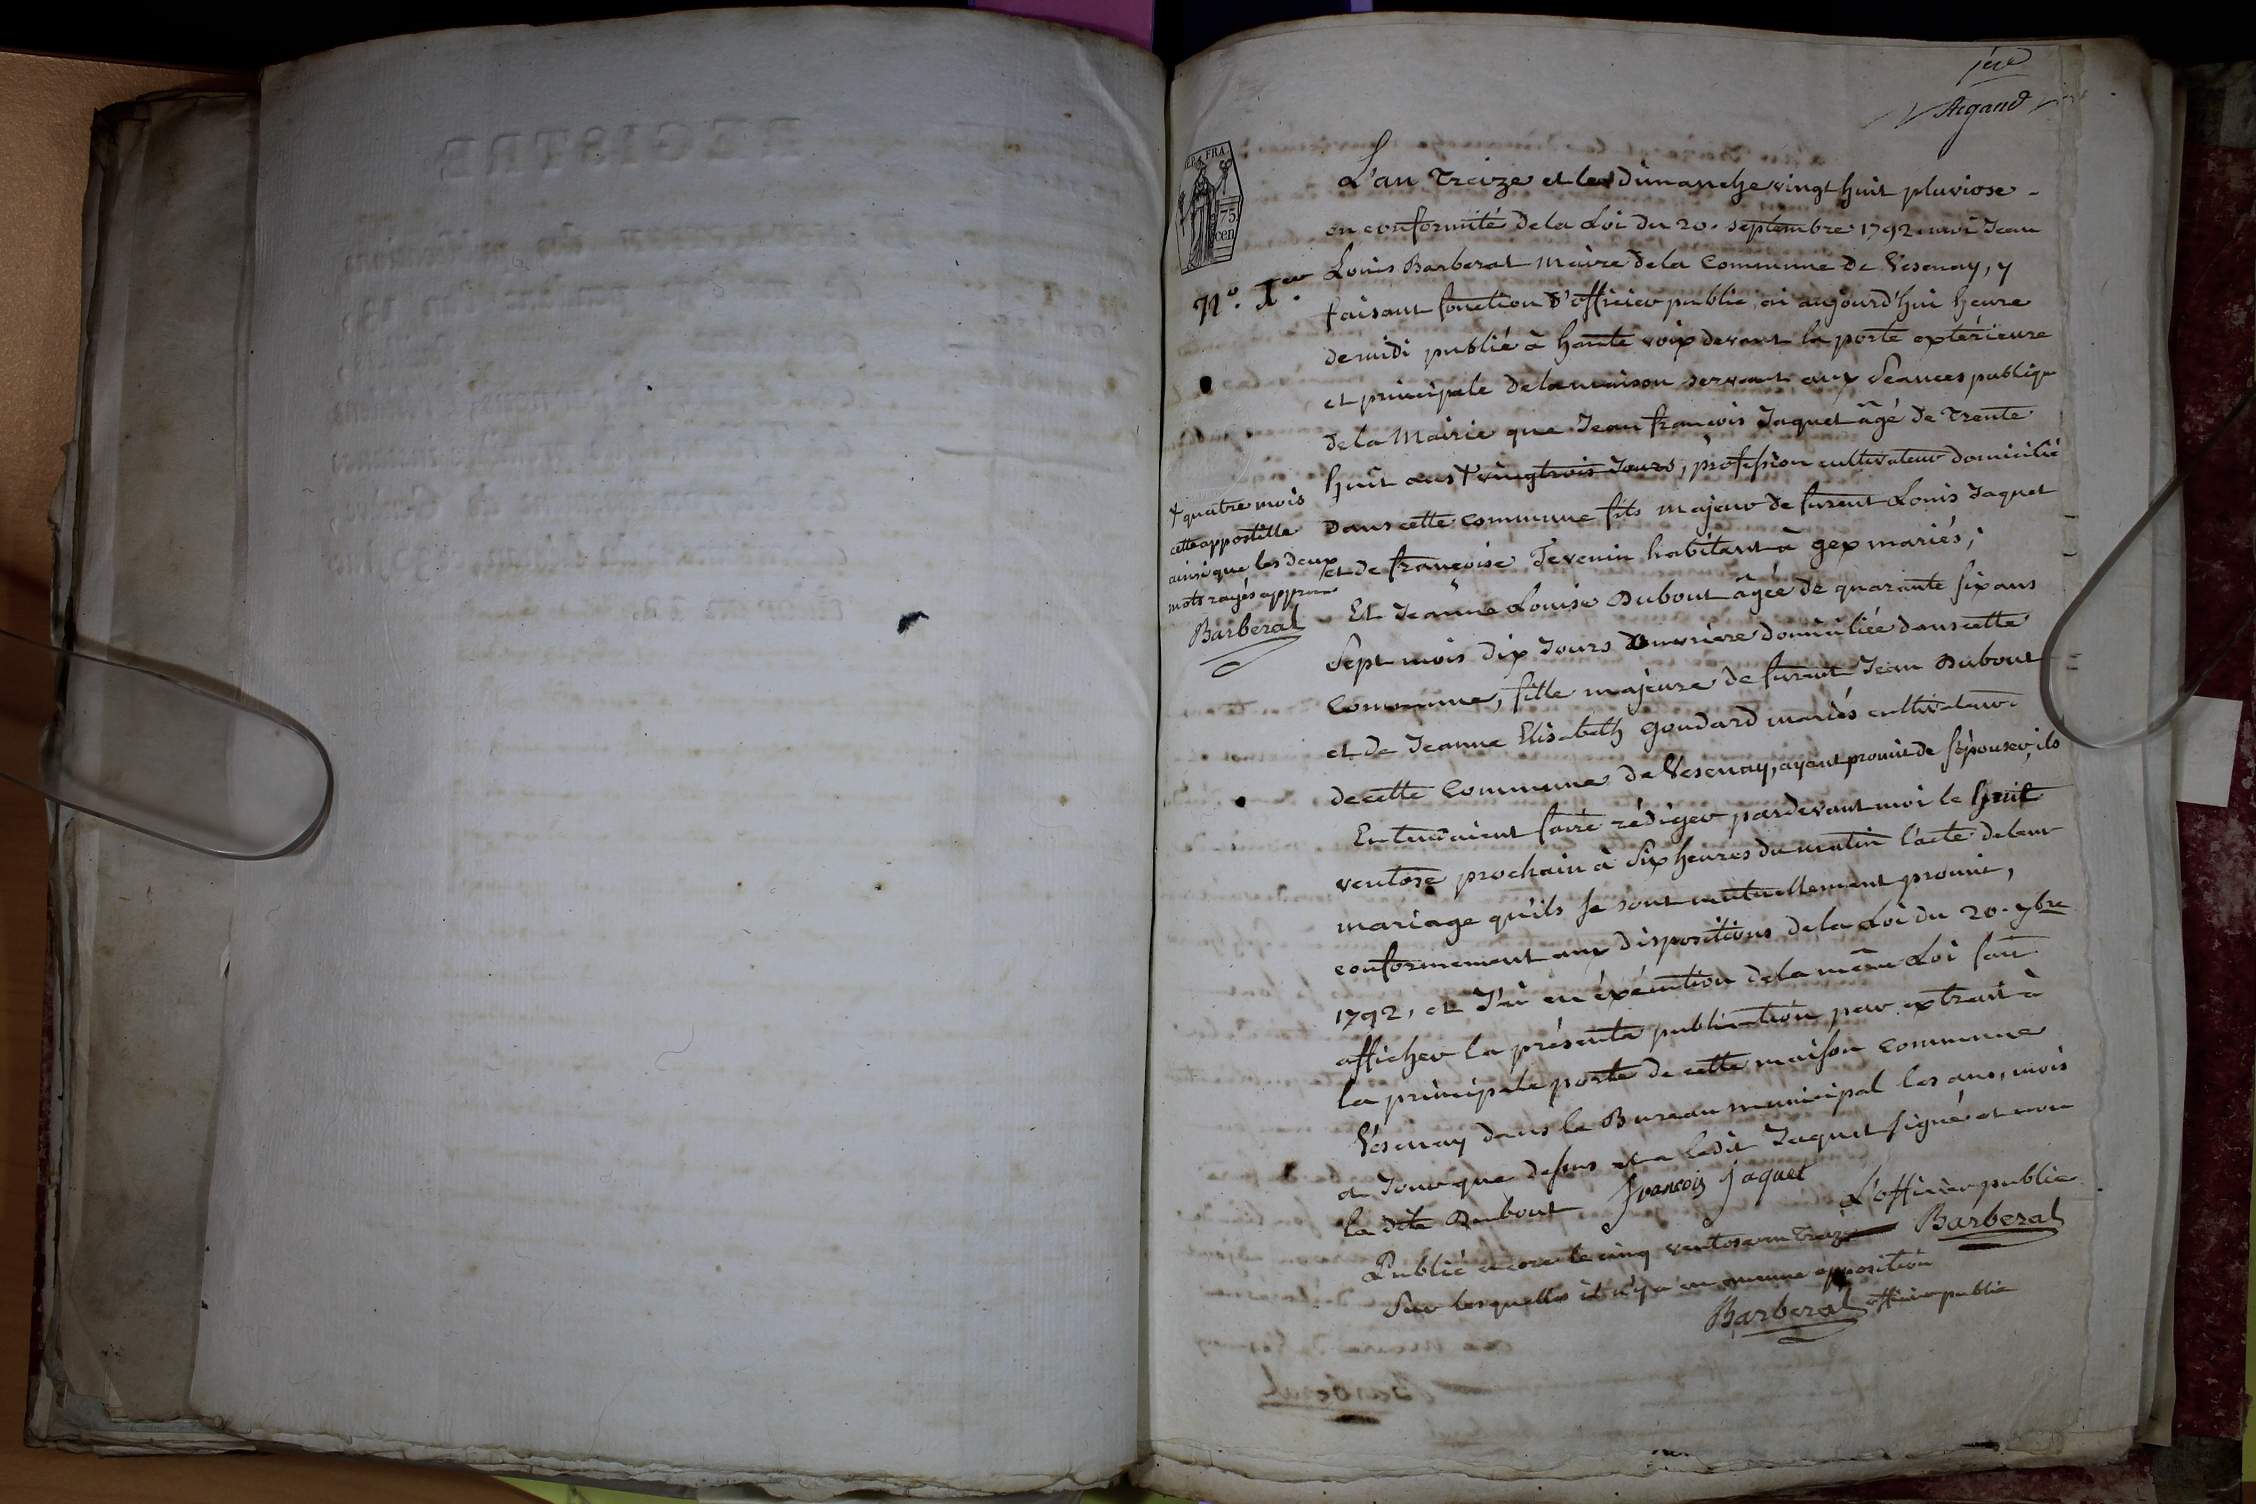 1ere
Argand
REP. FRA.
75
cen
L'an treize et le dimanche vingt huit pluviose
en conformité de la Loi du 20. septembre 1792. moi Jean
N°. 1er Louis Barberat maire de la Commune de Vesenay, y
faisant fonction d'officier public, ai aujourd'hui heure
de midi publié à haute voix devant la porte extérieure
et principale de la maison servant aux Séances publique
de la Mairie que Jean françois Jaquet âgé de trente
huit ans + vingt trois Jours, profession cultivateur domicilié
dans cette commune fils majeur de furent Louis Jaquet
et de françoise Tevenin habitant à gex mariés,
+ quatre mois
cette appostille
ainsi que les deux
mots rayés approuvé
Barberat
Et Jeanne Louise Dubout âgée de quarante six ans
Sept mois dix Jours ouvriere domiciliée dans cette
Commune, fille majeure de furent Jean Dubout
et de Jeanne Elisabeth Goudard mariés cultivateur
de cette Commune de Vesenay, ayant promit de s'épouser, ils
Entendaient faire rédiger pardevant moi le huit
ventose prochain à Six heures du matin l'acte de leur
mariage qu'ils se sont mutuellement promit,
conformement aux dispositions de la Loi du 20. 7bre
1792, et J'ai en éxécution de la même Loi fait
afficher la présente publication par extrait à
la principale porte de cette maison commune
Vésenay dans le Bureau municipal les ans, mois
et Jour que dessus et a ledit Jaquet signé et non
la dite Dubout françois jaquet L'officier public
Publié encore le cinq ventose an treize Barberat
Sur lesquelles il n'y a eu aucune opposition
Barberat officier public